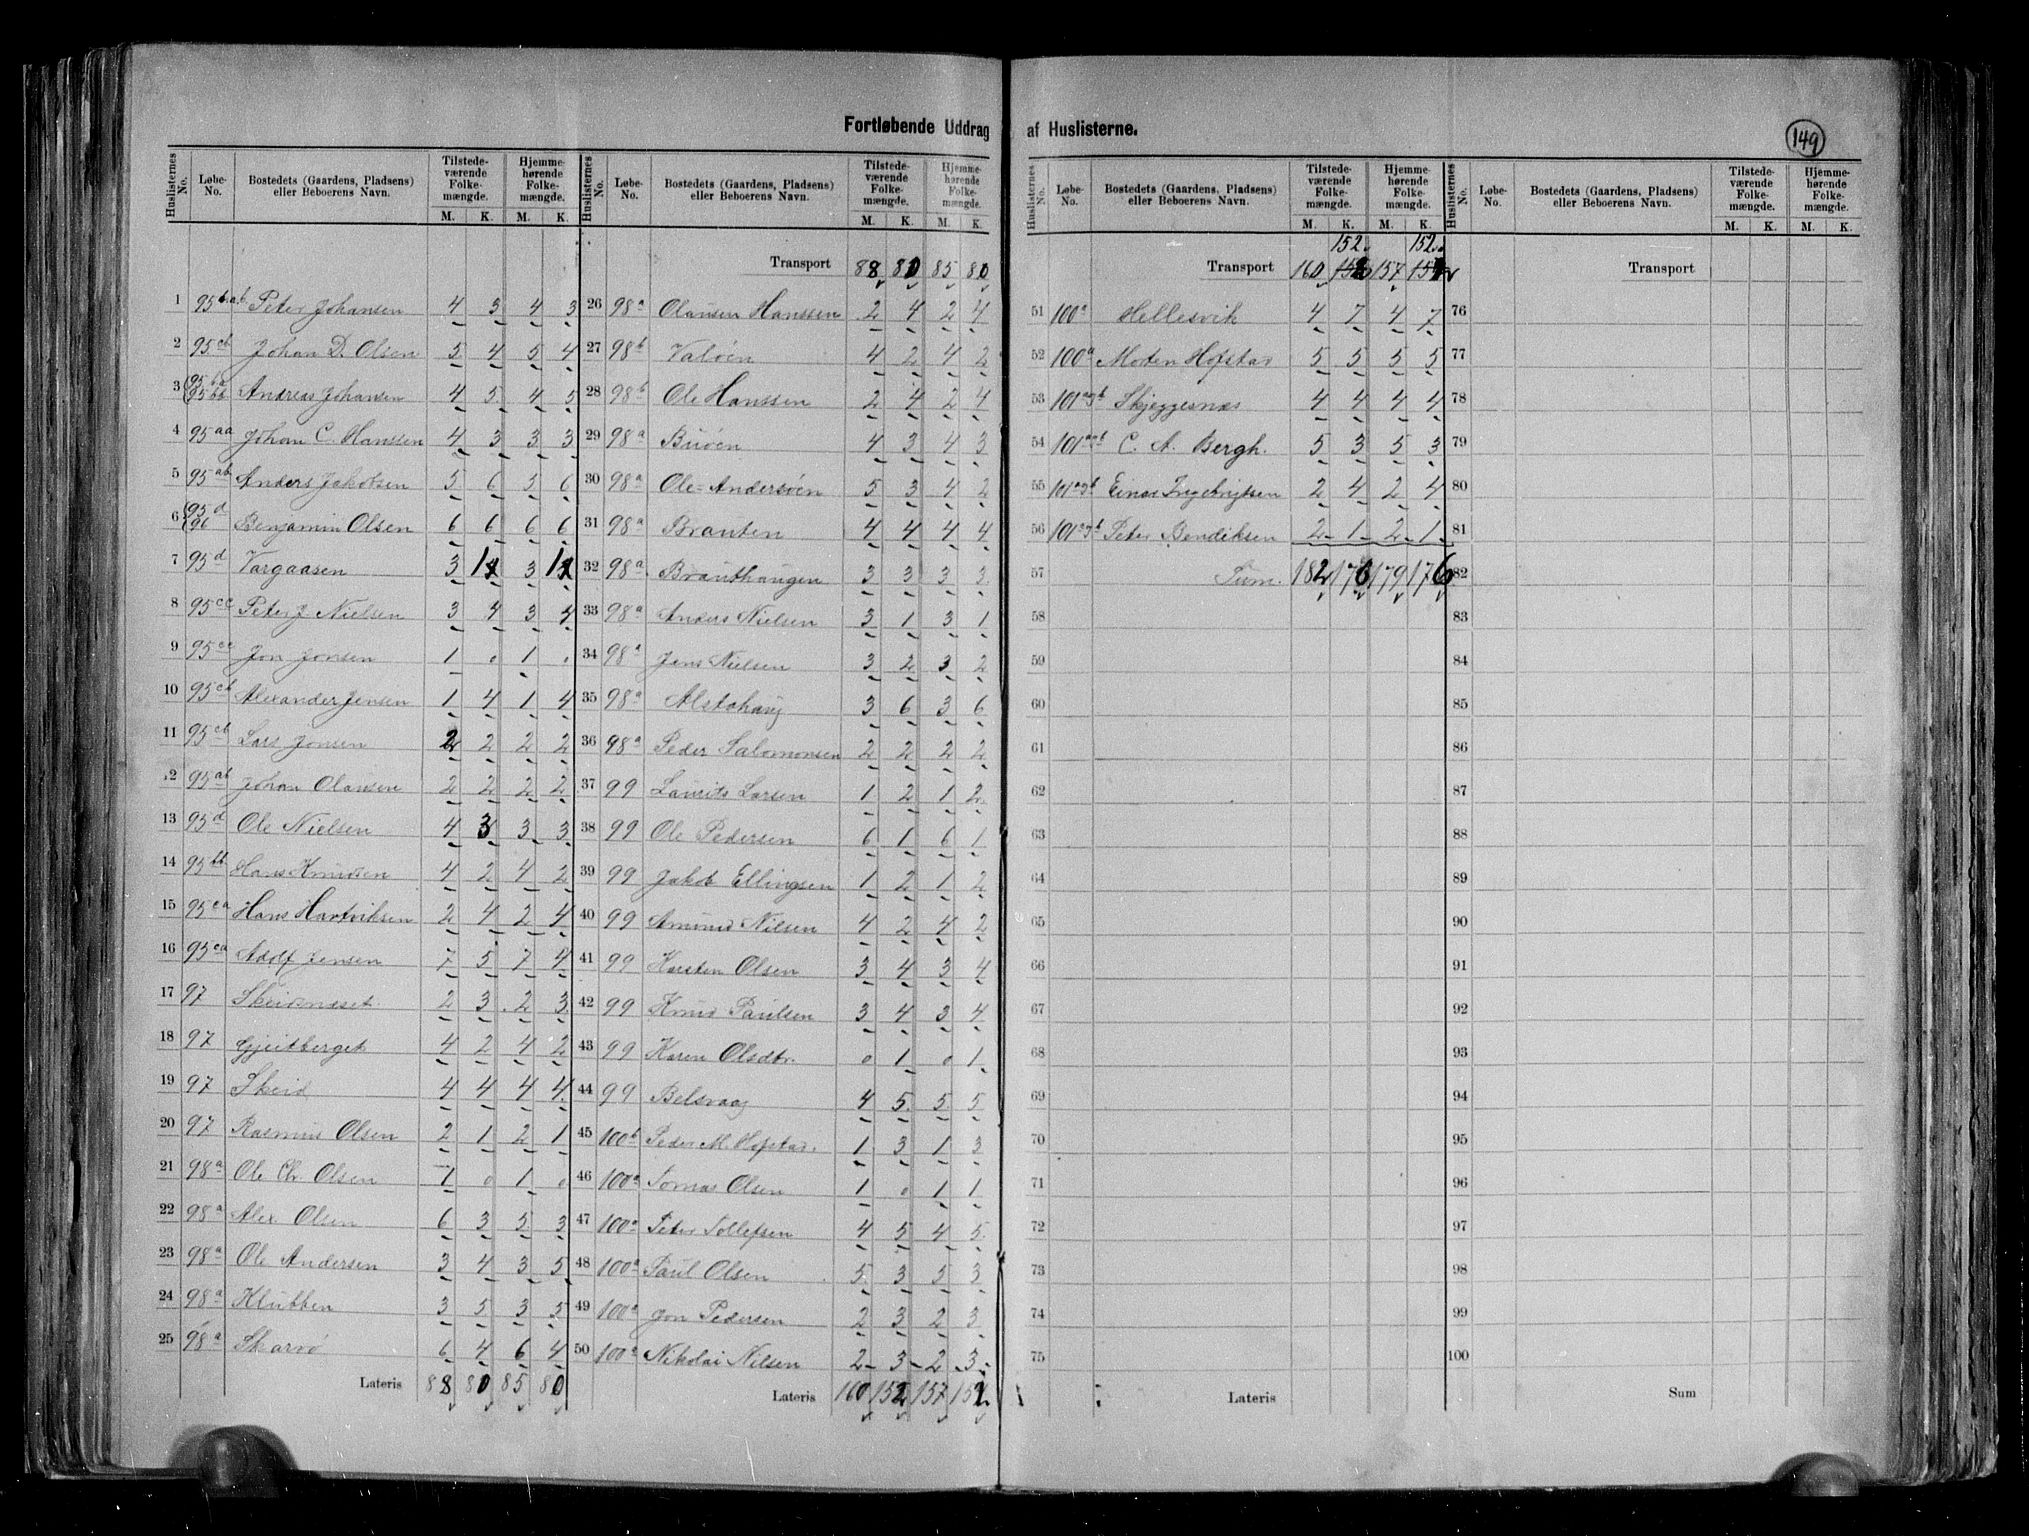 Fortløbende Uddrag af Huslisterne.
149
Huslisternes No. Løbe-No. Bostedets (Gaardens, Pladsens) eller Beboerens Navn. Tilstede-værende Folke-mængde. M. K. Hjemme-hørende Folke-mængde. M. K.
1 95 Peter Johansen 4 3 4 3
2 95cb Johan D. Olsen 5 4 5 4
3 95ba 95bb Andreas Johansen 4 5 4 5
4 95aa Johan C. Hanssen 4 3 3 3
5 95ab Anders Jakobsen 5 6 5 6
6 95d 96 Benjamin Olsen 6 6 6 6
7 95d Vargaasen 3 1 3 1
8 95cc Peter J. Nielsen 3 4 3 4
9 95cc Jon Jonsen 1 0 1 0
10 95cb Alexander Jensen 1 4 1 4
11 95cb Lars Jonsen 2 2 2 2
12 95ab Johan Olausen 2 2 2 2
13 95d Ole Nielsen 4 3 3 3
14 95bb Hans Knudsen 4 2 4 2
15 95ca Hans Hartviksen 2 4 2 4
16 95ca Adolf Jensen 7 5 7 4
17 97 Skeidnæset 2 3 2 3
18 97 Gjeitberget 4 2 4 2
19 97 Skeid 4 4 4 4
20 97 Rasmus Olsen 2 1 2 1
21 98a Ole Chr. Olsen 1 0 1 0
22 98a Alex. Olsen 6 3 5 3
23 98a Ole Andersen 3 4 3 5
24 98a Klubben 3 5 3 5
25 98a Skarvø 6 4 6 4
Lateris 88 80 85 80
Huslisternes No. Løbe-No. Bostedets (Gaardens, Pladsens) eller Beboerens Navn. Tilstede-værende Folke-mængde. M. K. Hjemme-hørende Folke-mængde. M. K.
Transport 88 80 85 80
26 98a Olausen Hanssen 2 4 2 4
27 98b Valøen 4 2 4 2
28 98b Ole Hanssen 2 4 2 4
29 98a Buøen 4 3 4 3
30 98a Ole-Andersøen 5 3 4 2
31 98a Brauten 4 4 4 4
32 98a Brauthaugen 3 3 3 3
33 98a Anders Nielsen 3 1 3 1
34 98a Jens Nielsen 3 2 3 2
35 98a Alstahaug 3 6 3 6
36 98a Peder Salomonsen 2 2 2 2
37 99 Laurits Larsen 1 2 1 2
38 99 Ole Pedersen 6 1 6 1
39 99 Jakob Ellingsen 1 2 1 2
40 99 Amund Nilsen 4 2 4 2
41 99 Karsten Olsen 3 4 3 4
42 99 Knud Paulsen 3 4 3 4
43 99 Karen Olsdtr. 0 1 0 1
44 99 Belsvaag 4 5 5 5
45 100b Peder M. Hofstad. 1 3 1 3
46 100a Tomas Olsen 1 0 1 1
47 100a Peter Tollefsen 4 5 4 5
48 100a Paul Olsen 5 3 5 3
49 100a Jon Pedersen 2 3 2 3
50 100a Nikolai Nilsen 2 3 2 3
Lateris 160 152 157 152
Huslisternes No. Løbe-No. Bostedets (Gaardens, Pladsens) eller Beboerens Navn. Tilstede-værende Folke-mængde. M. K. Hjemme-hørende Folke-mængde. M. K.
152 152
Transport 160 157
51 100a Hellesvik 4 7 4 7
52 100a Morten Hofstad 5 5 5 5
53 101a3b Skjeggesnæs 4 4 4 4
54 101a3b C. A. Bergh. 5 3 5 3
55 101a3b Einar Ingebrigtsen 2 4 2 4
56 101a3b Peter Bendiksen 2 1 2 1
57 Sum. 182 176 179 176
58
59
60
61
62
63
64
65
66
67
68
69
70
71
72
73
74
75
Lateris
Huslisternes No. Løbe-No. Bostedets (Gaardens, Pladsens) eller Beboerens Navn. Tilstede-værende Folke-mængde. M. K. Hjemme-hørende Folke-mængde. M. K.
Transport
76
77
78
79
80
81
82
83
84
85
86
87
88
89
90
91
92
93
94
95
96
97
98
99
100
Sum